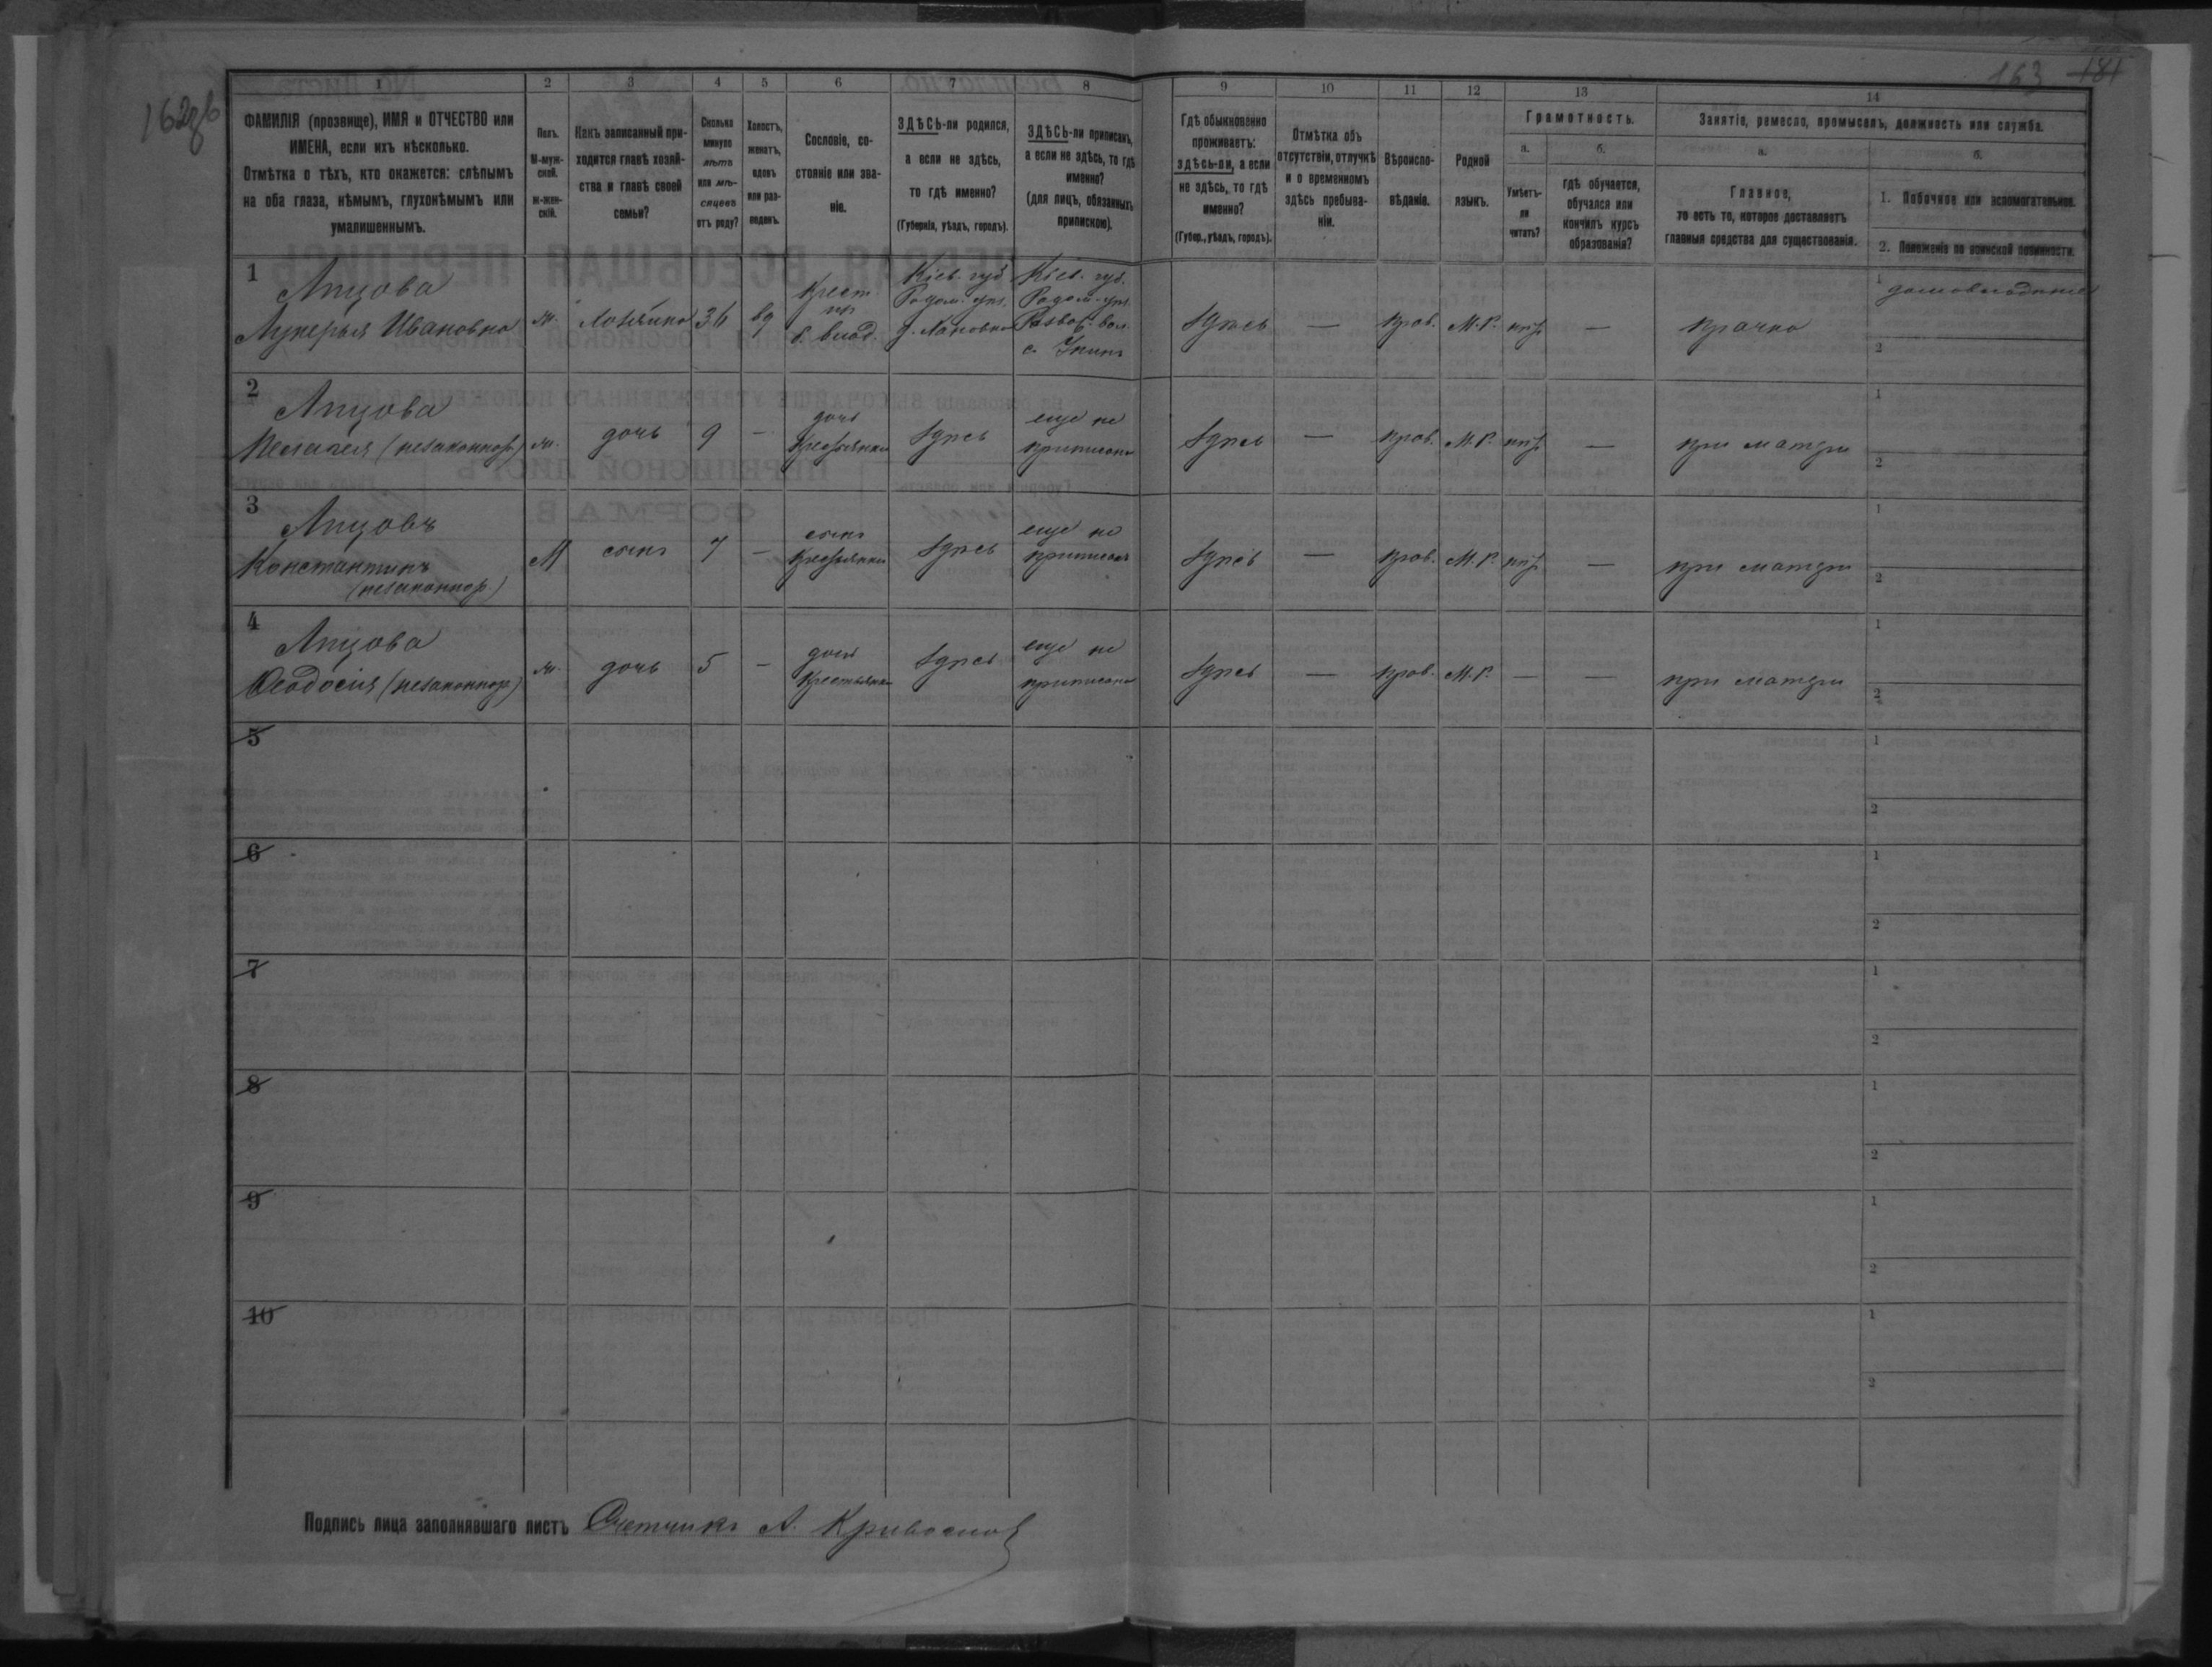 162об
163 181
1 2 3 4 5 6 7 8 9 10 11 12 13 14
ФАМИЛІЯ (прозвище), ИМЯ и ОТЧЕСТВО или
ИМЕНА, если ихъ нѣсколько.
Отмѣтка о тѣхъ, кто окажется: слѣпымъ
на оба глаза, нѣмымъ, глухонѣмымъ или
умалишеннымъ.
Полъ.
М-муж-
ской.
ж-жен-
скій.
Какъ записанный при-
ходится главѣ хозяй-
ства и главѣ своей
семьи?
Сколько
минуло
лѣтъ
или мѣ-
сяцевъ
отъ роду?
Холостъ,
женатъ,
вдовъ
или раз-
веденъ.
Сословіе, со-
стояніе или зва-
ніе.
ЗДѢСЬ-ли родился,
а если не здѣсь,
то гдѣ именно?
(Губернія, уѣздъ, городъ).
ЗДѢСЬ-ли приписанъ,
а если не здѣсь, то гдѣ
именно?
(для лицъ, обязанныхъ
припискою).
Гдѣ обыкновенно
проживаетъ:
здѣсь-ли, а если
не здѣсь, то гдѣ
именно?
(Губер., уѣздъ, городъ).
Отмѣтка объ
отсутствіи, отлучкѣ
и о временномъ
здѣсь пребыва-
ніи.
Вѣроиспо-
вѣданіе.
Родной
языкъ.
Грамотность.
а.
Умѣетъ-
ли
читать?
б.
гдѣ обучается,
обучался или
кончилъ курсъ
образованія?
Занятіе, ремесло, промыселъ, должность или служба.
а.
Главное,
то есть то, которое доставляетъ
главныя средства для существованія.
б.
1. Побочное или вспомогательное.
2. Положеніе по воинской повинности.
1
Лукерья Ивановна
ж.
хозяйка
36
вд
Крест.
б. влад.
Кіев. губ.
Радом. у.
Кіев. губ.
Радом. у.
вол.
здѣсь
—
прав.
М.Р.
нѣт
—
прачка
1
2
2
Пелагея (незаконнор.)
ж.
дочь
9
—
дочь
крестьянки
здѣсь
еще не
приписана
здѣсь
—
прав.
М.Р.
нѣт
—
при матери
1
2
3
Константинъ
(незаконнор.)
М
сынъ
7
—
сынъ
крестьянки
здѣсь
еще не
приписанъ
здѣсь
—
прав.
М.Р.
нѣт
—
при матери
1
2
4
Ѳеодосія (незаконнор.)
ж.
дочь
5
—
дочь
крестьянки
здѣсь
еще не
приписана
здѣсь
—
прав.
М.Р.
—
—
при матери
1
2
5
1
2
6
1
2
7
1
2
8
1
2
9
1
2
10
1
2
Подпись лица заполнявшаго листъ Счетчикъ А.